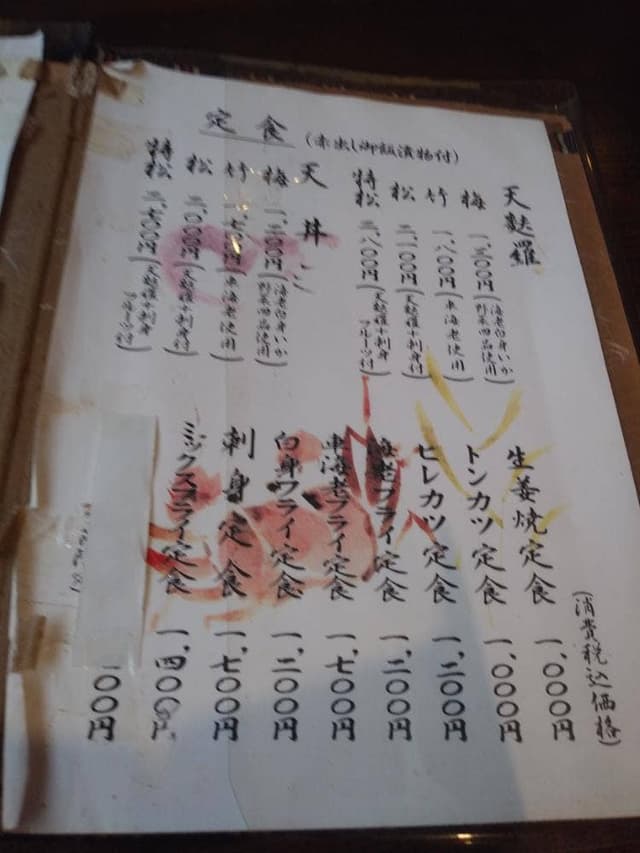 定食 (赤出し御飯漬物付)
天麩羅
梅 一、三〇〇円 (海老白身いか野菜四品使用)
竹 一、八〇〇円 (車海老使用)
松 二、一〇〇円 (天麩羅十刺身付)
特松 二、八〇〇円 (天麩羅十刺身フルーツ付)
天丼
梅 一、二〇〇円 (海老白身いか野菜四品使用)
竹 一、七〇〇円 (車海老使用)
松 二、〇〇〇円 (天麩羅十刺身付)
特松 二、七〇〇円 (天麩羅十刺身フルーツ付)
(消費税込価格)
生姜焼定食 一、〇〇〇円
トンカツ定食 一、〇〇〇円
ヒレカツ定食 一、二〇〇円
海老フライ定食 一、二〇〇円
車海老フライ定食 一、七〇〇円
白身フライ定食 一、二〇〇円
刺身定食 一、七〇〇円
ミックスフライ定食 一、四〇〇円
〇〇円